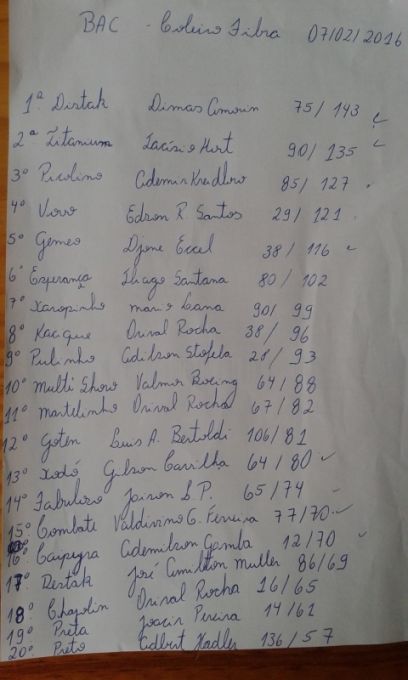 BAC - Coleiro Fibra 07/02/2016
1º Distak Dimas Amorin 75/143
2º Titanium Tarcisio Hort 90/135
3º Picolino Ademir Kreidlow 85/127
4º Vovo Edson R. Santos 29/121
5º Gemeo Djone Eccel 38/116
6º Esperança Thiago Santana 80/102
7º Xaropinho Mario Lana 90/99
8º Kacque Orival Rocha 38/96
9º Pulinho Adilson Stofela 21/93
10º Multi Show Valmor Boeing 64/88
11º Martelinho Orival Rocha 67/82
12º Goten Luis A. Bertoldi 106/81
13º Xodó Gilson Carrilha 64/80
14º Fabuloso Joison S.P. 65/74
15º Combate Valdivino G. Ferreira 77/70
16º Caipyra Ademilson Gamba 12/70
17º Restak José Amilton Muller 86/69
18º Chapolin Orival Rocha 16/65
19º Preta Joacir Pereira 14/61
20º Preto Adbert Hadler 136/57